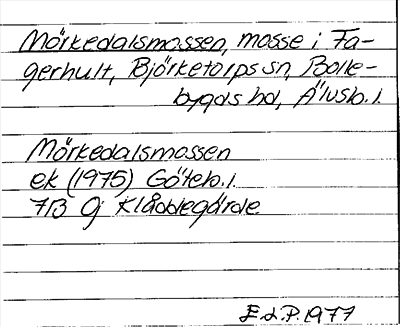 Mörkedalsmossen, mosse i Fa-
gerhult, Björketorps sn, Bolle-
bygds hd, Älvsb. l.
Mörkedalsmossen
ek (1975) Göteb. l.
7B 9j Klåddegärde
E.d.P. 1977